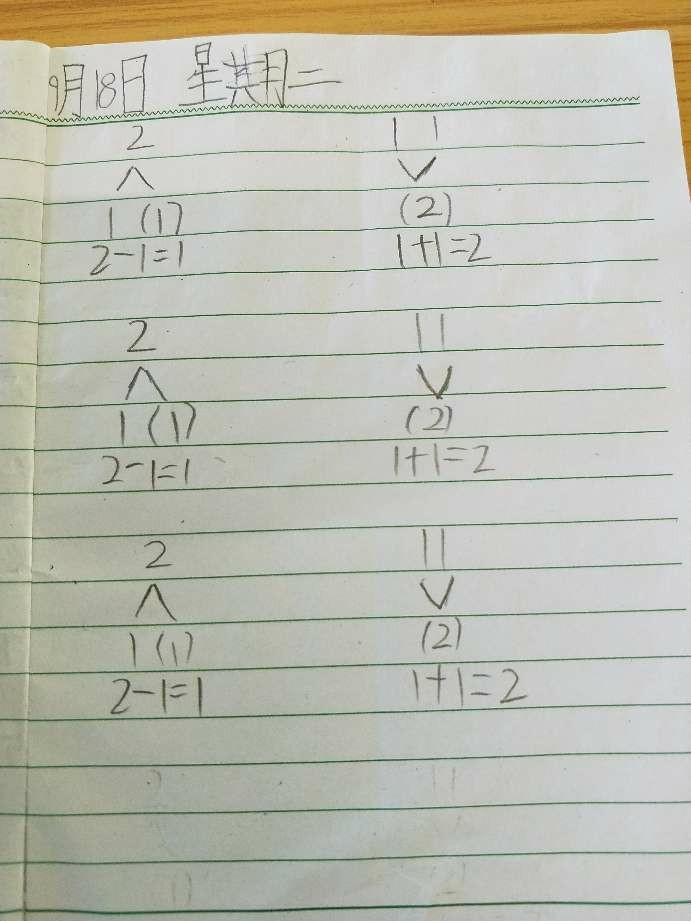 9月18日 星期二
2 1 1
∧ ∨
1 (1) (2)
2-1=1 1+1=2
2 1 1
∧ ∨
1 (1) (2)
2-1=1 1+1=2
2 1 1
∧ ∨
1 (1) (2)
2-1=1 1+1=2